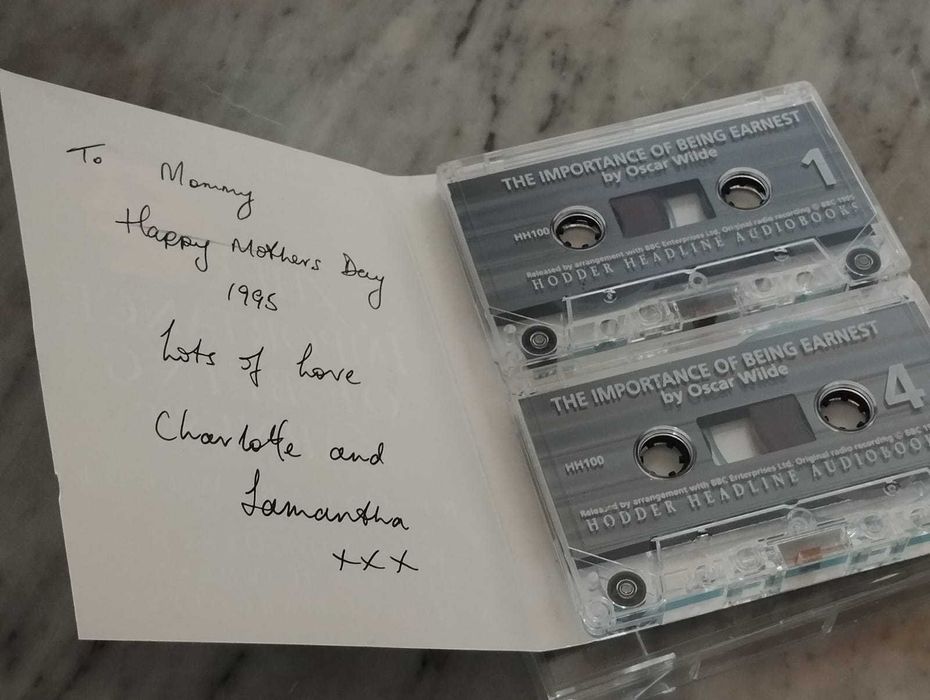 To Mommy
Happy Mothers Day
1995
Lots of love
Charlotte and
Samantha
xxx
THE IMPORTANCE OF BEING EARNEST
by Oscar Wilde
1
HH100
Released by arrangement with BBC Enterprises Ltd. Original radio recording © BBC 1995
HODDER HEADLINE AUDIOBOOKS
THE IMPORTANCE OF BEING EARNEST
by Oscar Wilde
4
HH100
Released by arrangement with BBC Enterprises Ltd. Original radio recording © BBC
HODDER HEADLINE AUDIOBOO